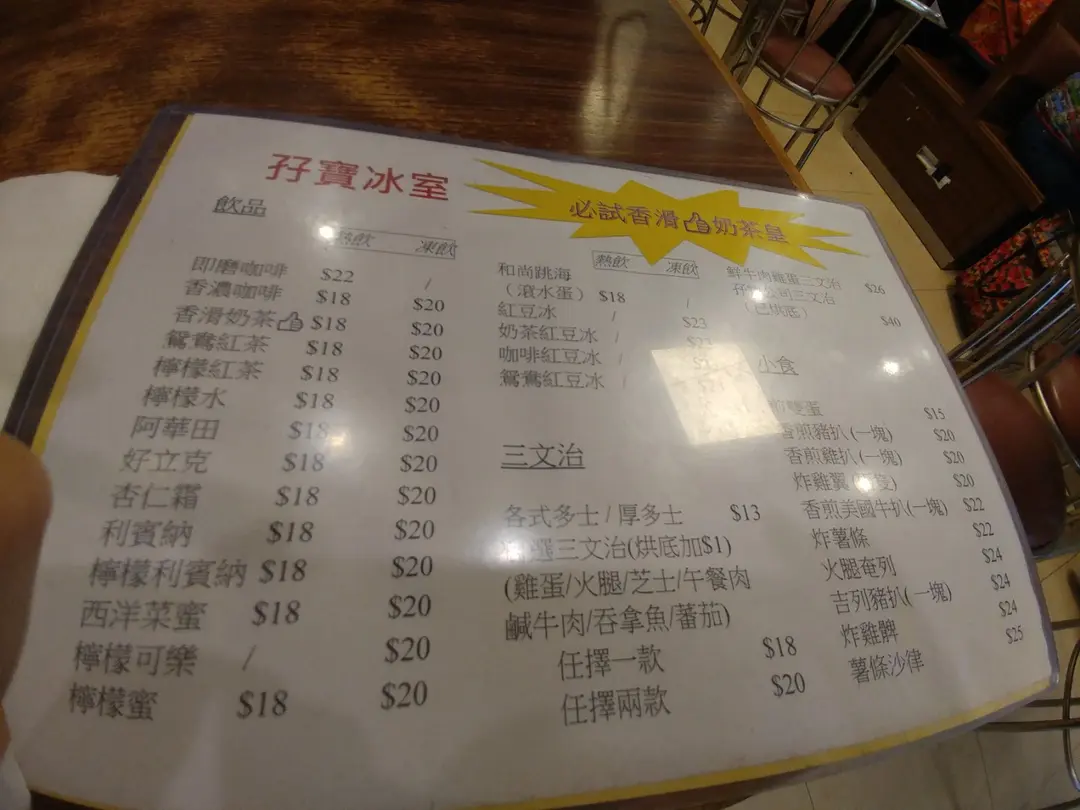 孖寶冰室
必試香滑奶茶皇
飲品
熱飲 凍飲
即磨咖啡 $22 /
香濃咖啡 $18 $20
香滑奶茶 $18 $20
鴛鴦紅茶 $18 $20
檸檬紅茶 $18 $20
檸檬水 $18 $20
阿華田 $18 $20
好立克 $18 $20
杏仁霜 $18 $20
利賓納 $18 $20
檸檬利賓納 $18 $20
西洋菜蜜 $18 $20
檸檬可樂 / $20
檸檬蜜 $18 $20
熱飲 凍飲
和尚跳海
(滾水蛋) $18 /
紅豆冰 / $23
奶茶紅豆冰 /
咖啡紅豆冰 /
鴛鴦紅豆冰 /
三文治
各式多士/厚多士 $13
選三文治(烘底加$1)
(雞蛋/火腿/芝士/午餐肉
鹹牛肉/吞拿魚/蕃茄)
任擇一款 $18
任擇兩款 $20
鮮牛肉雞蛋三文治 $26
公司三文治
(已烘底) $40
小食
雙蛋 $15
香煎豬扒(一塊) $20
香煎雞扒(一塊) $20
炸雞翼 $20
香煎美國牛扒(一塊) $22
炸薯條 $22
火腿奄列 $24
吉列豬扒(一塊) $24
炸雞髀 $24
薯條沙律 $25